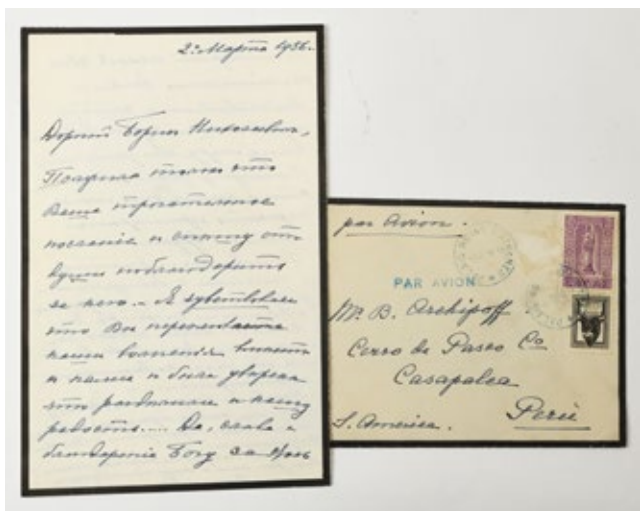 2го Марта 1936.
Дорогой Борис Николаевич,
Получила только что
Ваше трогательное
посланіе и спѣшу отъ
души поблагодарить
за него. – Я чувствовала
что Вы переживаете
наши волненія вмѣстѣ
и съ нами и была увѣрена
что раздѣлили и нашу
радость.... Да, слава и
благодареніе Богу за
par Avion.
PAR AVION
Mr. B. Archipoff
Cerro de Pasco Co
Casapalca
Perú
S. America.